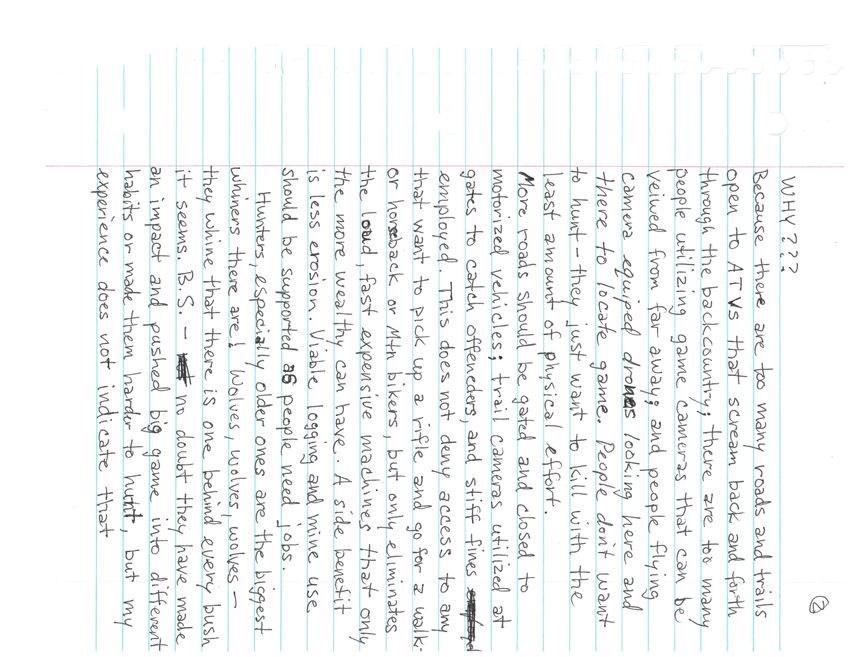 ②
WHY???
Because there are too many roads and trails
open to ATVs that scream back and forth
through the backcountry; there are too many
people utilizing game cameras that can be
veiwed from far away; and people flying
camera equiped drones looking here and
there to locate game. People don't want
to hunt - they just want to kill with the
least amount of physical effort.
More roads should be gated and closed to
motorized vehicles; trail cameras utilized at
gates to catch offeneders, and stiff fines
employed. This does not deny access to any
that want to pick up a rifle and go for a walk.
or horseback or Mtn bikers, but only eliminates
the loud, fast expensive machines that only
the more wealthy can have. A side benefit
is less erosion. Viable logging and mine use
should be supported as people need jobs.
Hunters, especially older ones are the biggest
whiners there are! Wolves, wolves, wolves -
they whine that there is one behind every bush
it seems. B.S. - no doubt they have made
an impact and pushed big game into different
habits or made them harder to hunt, but my
experience does not indicate that